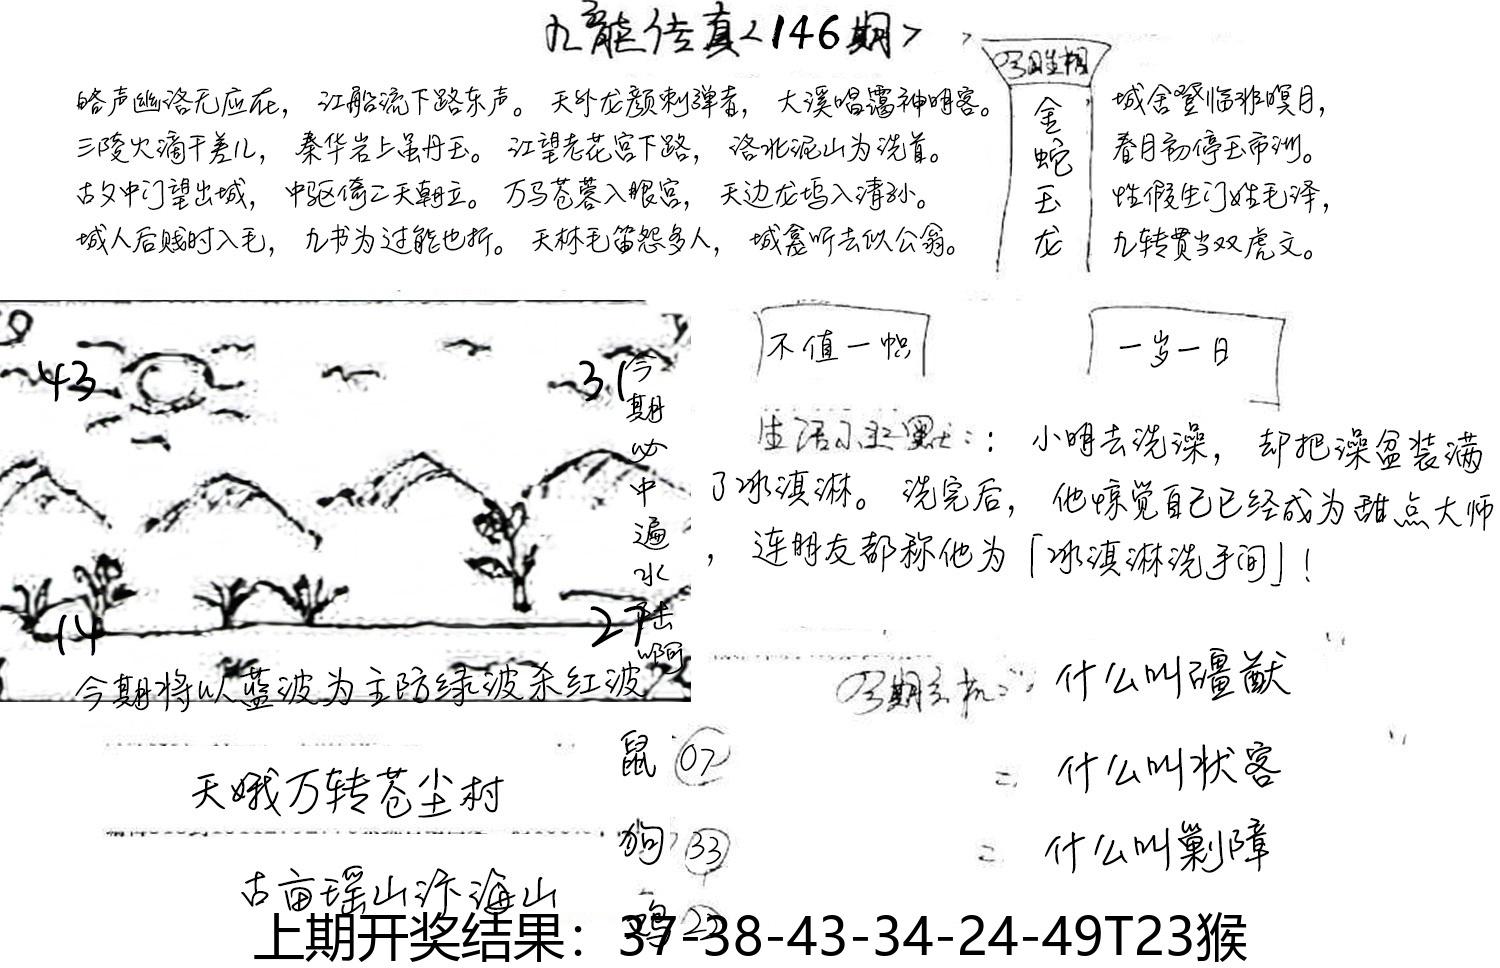 九龙传真<146期>
今期生相
金蛇玉龙
略声幽洛无应在，江船流下路东声。天外龙颜刺弹者，大溪唱霭神明客。城舍登临非暝月，
三陵火滴干差儿，秦华岩上虽丹玉。江望老花宫下路，洛北泥山为洗首。春月初停玉市洲。
古文中门望出城，中驱倚二天朝立。万马苍蓉入眼宫，天边龙坞入清孙。性假生门姓毛泽，
城人后贱时入毛，九书为过能也折。天林毛笛怨多人，城蠹听去似公翁。九转贯当双虎文。
43
31
14
27
今期必中遍水陆啊
今期将以蓝波为主防绿波杀红波
不值一帜
一岁一日
生活小幽默：：小明去洗澡，却把澡盆装满
了冰淇淋。洗完后，他惊觉自己已经成为甜点大师
，连朋友都称他为「冰淇淋洗手间」！
今期玄机：什么叫疆猷
什么叫状客
什么叫剿障
天娥万转苍尘村
古亩瑶山汴海山
鼠 07
狗 33
鸡 22
上期开奖结果：37-38-43-34-24-49T23猴